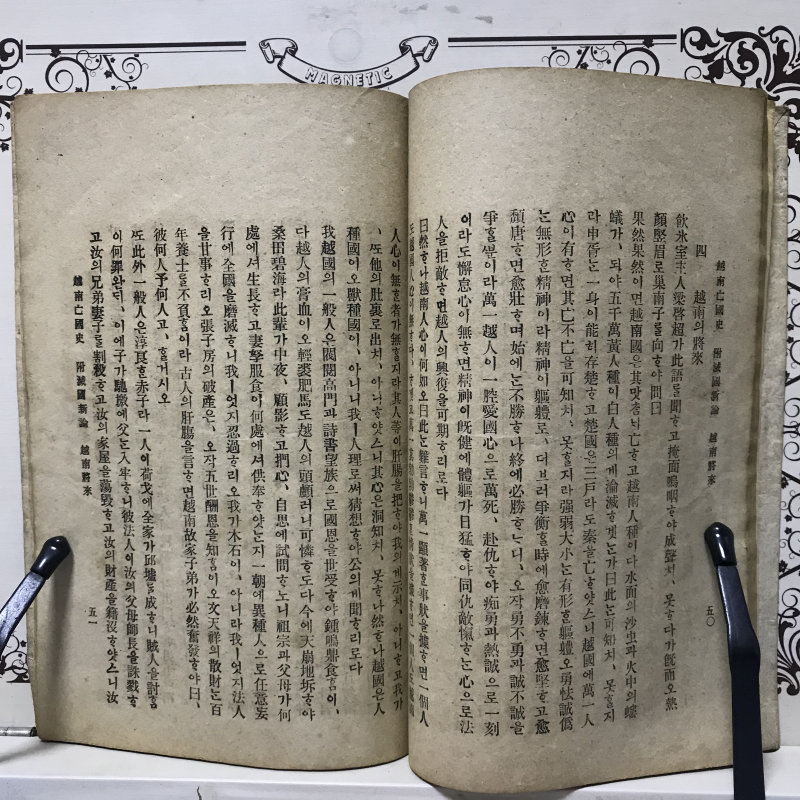 越南亡國史 附滅國新論 越南將來 五〇
四 越南의將來
飮氷室主人梁啓超가此語를聞ᄒᆞ고掩面嗚咽ᄒᆞ야成聲치、못ᄒᆞ다가旣而오熱
顔堅眉로巢南子를向ᄒᆞ야問曰
果然果然이면越南國은其맛ᄎᆞᆷᄂᆡ亡ᄒᆞ고越南人種이다水面의沙虫과火中의螻
蟻가、되야五千萬黃人種이白人種의게淪滅ᄒᆞ겟ᄂᆞᆫ가曰此ᄂᆞᆫ可知치、못ᄒᆞᆯ지
라申胥ᄂᆞᆫ一身이能히存楚ᄒᆞ고楚國은三戶라도秦을亡ᄒᆞ얏스니越國에萬一人
心이有ᄒᆞ면其亡不亡을可知치、못ᄒᆞᆯ지라强弱大小ᄂᆞᆫ有形ᄒᆞᆫ軀體오勇怯誠僞
ᄂᆞᆫ無形ᄒᆞᆫ精神이라精神이軀體로、더브러爭衡ᄒᆞᆯ時에愈磨鍊ᄒᆞ면愈堅ᄒᆞ고愈
頹唐ᄒᆞ면愈壯ᄒᆞ며始에ᄂᆞᆫ不勝ᄒᆞ나終에必勝ᄒᆞᄂᆞ니、오작勇不勇과誠不誠을
爭ᄒᆞᆯᄲᅮᆫ이라萬一越人이一腔愛國心으로萬死、赴仇ᄒᆞ야痴勇과熱誠으로一刻
이라도懈怠心이無ᄒᆞ면精神이旣健에體軀가日猛ᄒᆞ야同仇敵愾ᄒᆞᄂᆞᆫ心으로法
人을拒敵ᄒᆞ면越人의興復을可期ᄒᆞ리로다
曰然ᄒᆞ나越南人心이何如오曰此ᄂᆞᆫ難言ᄒᆞ니萬一顯著ᄒᆞᆫ事狀을據ᄒᆞ면一個人
人心이無ᄒᆞᆫ者가無ᄒᆞᆯ지라其人等이肝腸을把ᄒᆞ야我의게示치、아니ᄒᆞ고我가
、ᄯᅩ他의肚裏로出치、아니ᄒᆞ얏스니其心은洞知치、못ᄒᆞ나然ᄒᆞ나越國은人
種國이오獸種國이、아니니我ㅣ人理로써猜想ᄒᆞ야公의게聞ᄒᆞ리로다
我越國의一般人은閥閱高門과詩書望族으로國恩을世受ᄒᆞ야鍾鳴鼎食ᄒᆞᆷ이、
다越人의膏血이오輕裘肥馬도越人의頭顱러니可憐ᄒᆞ도다今에天崩地坼ᄒᆞ야
桑田碧海라此輩가中夜、顧影ᄒᆞ고捫心、自思에試問ᄒᆞ노니祖宗과父母가何
處에셔生長ᄒᆞ고妻孥服食이何處에셔供奉ᄒᆞ얏ᄂᆞᆫ지一朝에異種人으로任意妄
行에全國을磨滅ᄒᆞ니我ㅣ엇지忍過ᄒᆞ리오我가木石이、아니라我ㅣ엇지法人
을甘事ᄒᆞ리오張子房의破產은、오작五世酬恩을知ᄒᆞᆷ이오文天祥의散財ᄂᆞᆫ百
年養士를不負ᄒᆞᆷ이라古人의肝腸을言ᄒᆞ면越南故家子弟가必然奮發ᄒᆞ야曰、
彼何人予何人고、ᄒᆞᆯ거시오
ᄯᅩ此外一般人은淳良ᄒᆞᆫ赤子라一人이荷戈에全家가邱墟를成ᄒᆞ니賊人을討ᄒᆞᆷ
이何罪완ᄃᆡ、이에子가驍墩에父ᄂᆞᆫ入牢ᄒᆞ니彼法人이汝의父母師長을誅戮ᄒᆞ
고汝의兄弟妻子를割殺ᄒᆞ고汝의家屋을蕩毁ᄒᆞ고汝의財產을籍沒ᄒᆞ얏스니汝
越南亡國史 附滅國新論 越南將來 五一
MAGNETIC